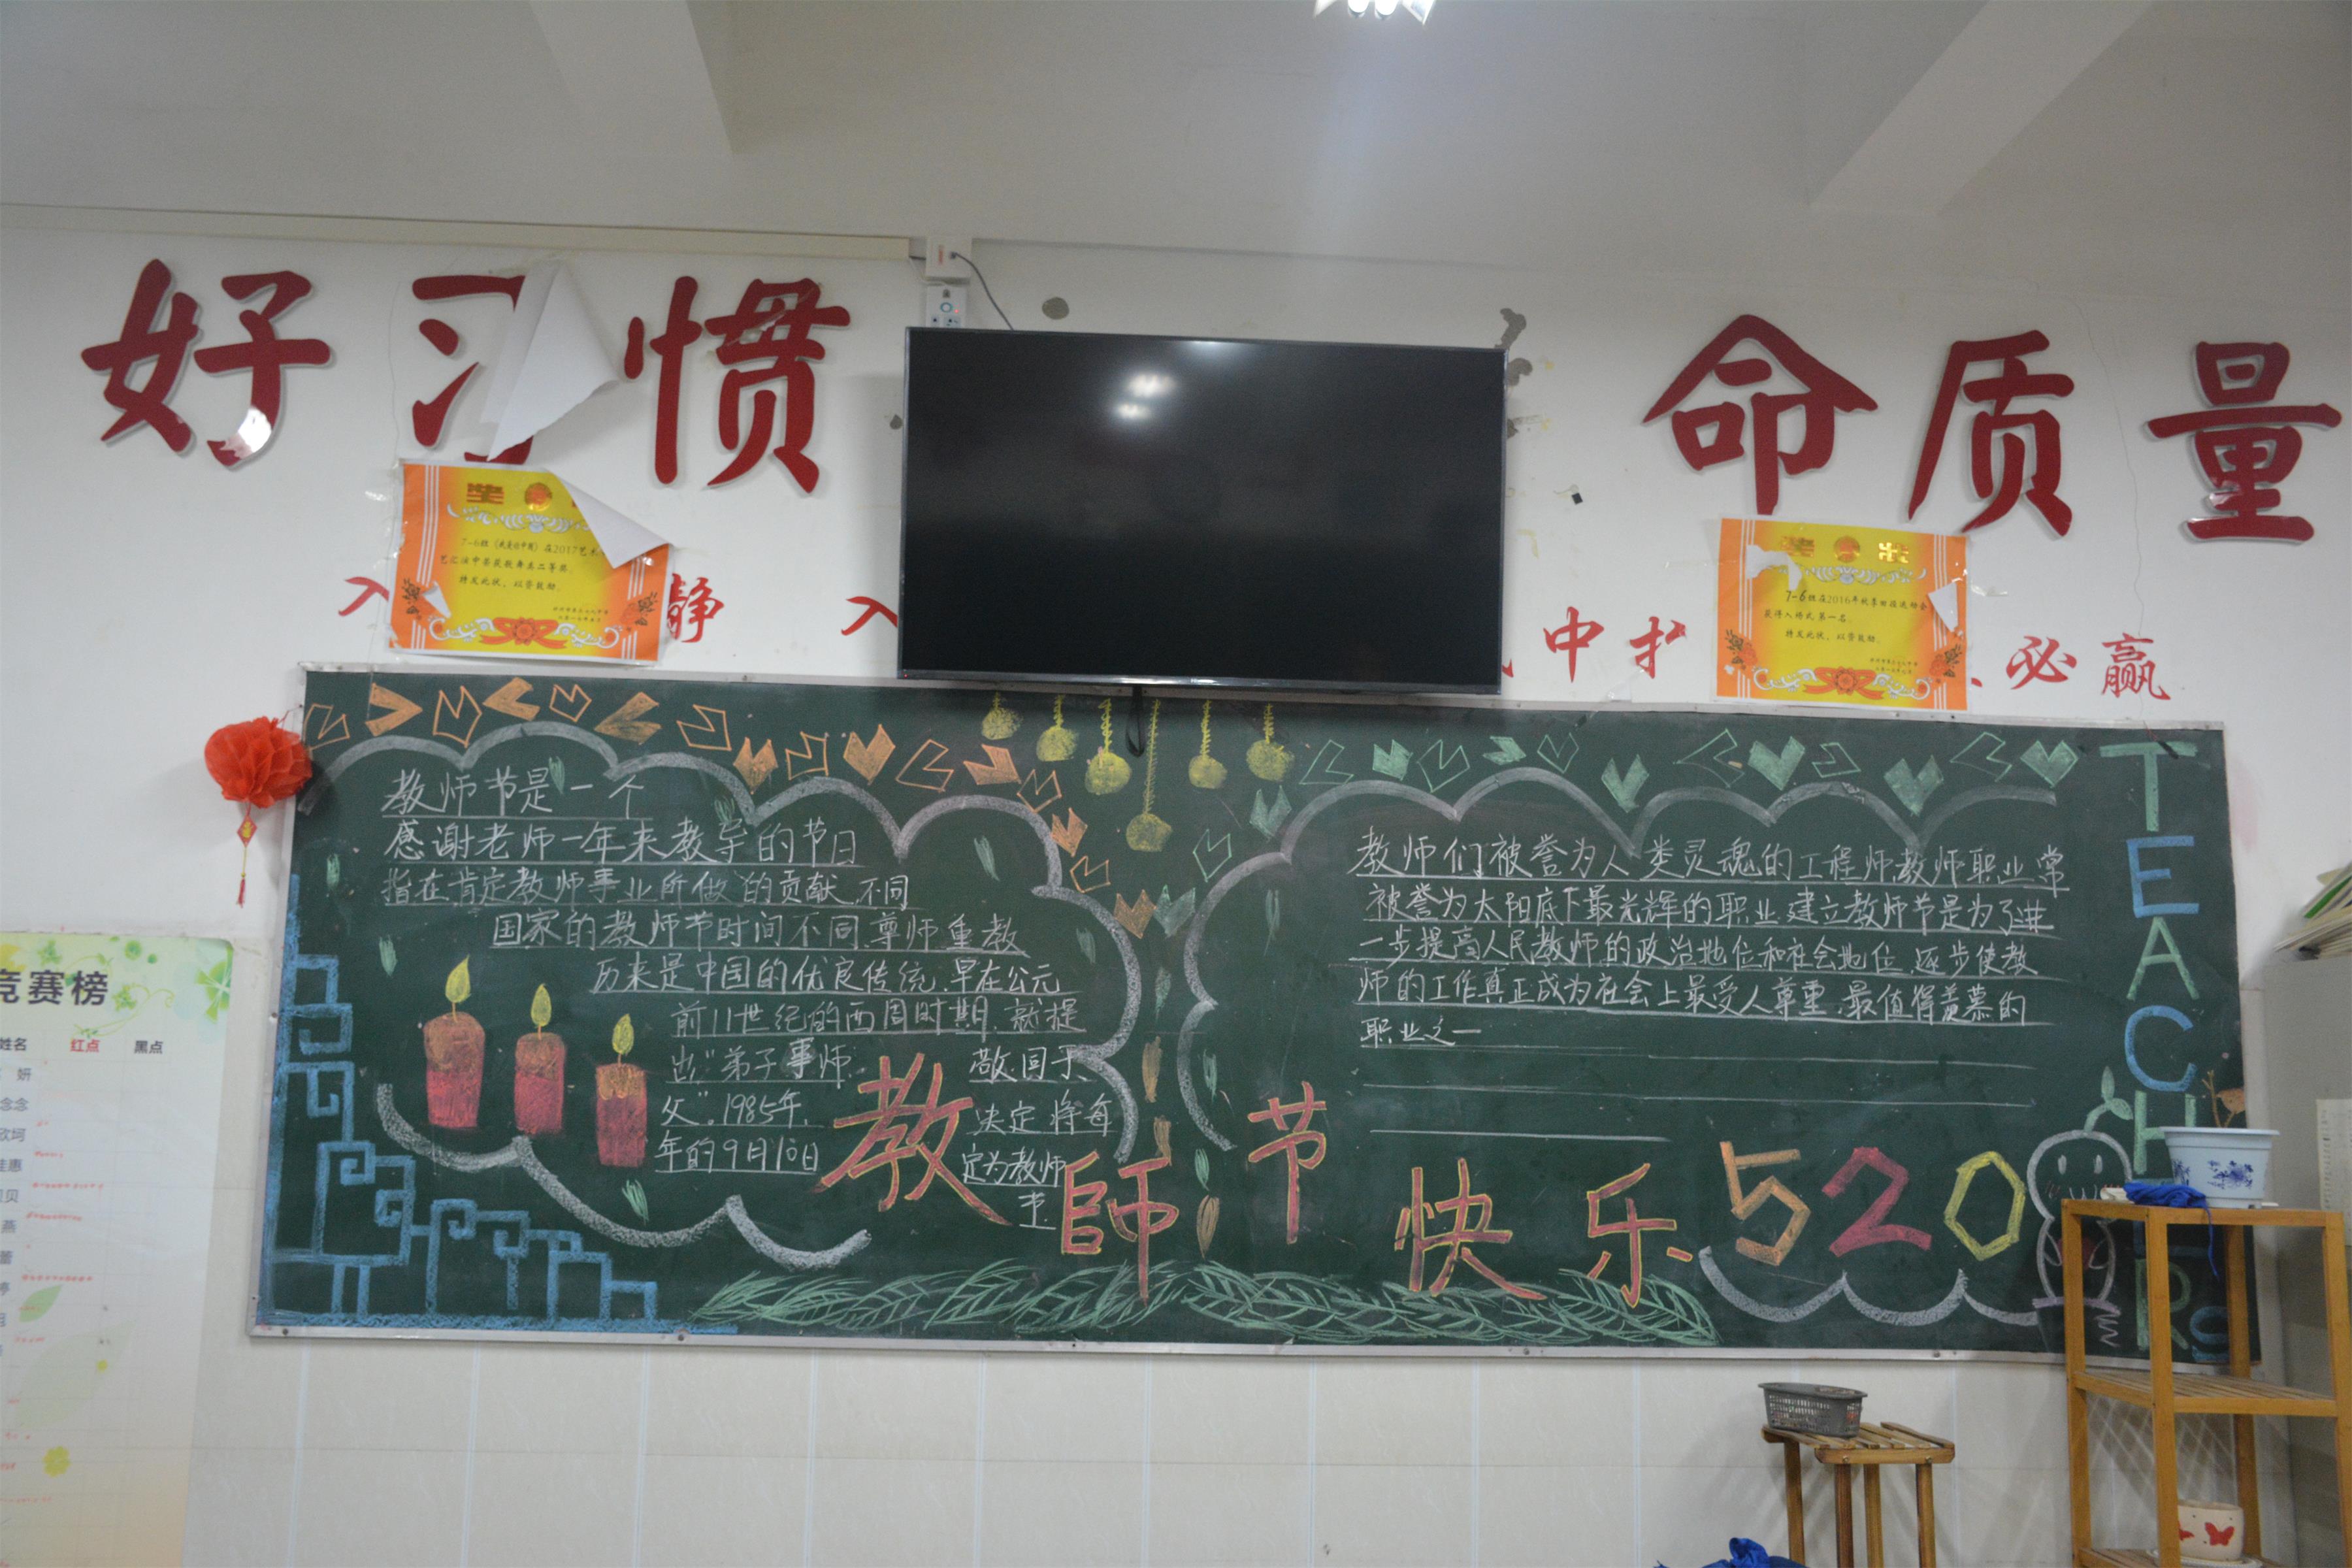 好习惯
命质量
7-6班《我爱你中国》在2017艺术
艺汇演中荣获歌舞类二等奖。
特发此状，以资鼓励。
荣 状
7-6班在2016年秋季田径运动会
获得入场式 第一名。
特发此状，以资鼓励。
入 静 入
中 必赢
教师节是一个
感谢老师一年来教导的节日
指在肯定教师事业所做的贡献.不同
国家的教师节时间不同.尊师重教
历来是中国的优良传统.早在公元
前11世纪的西周时期.就提
出"弟子事师. 敬同于
父".1985年. 决定 将每
年的9月10日 定为教师
节.
教师们被誉为人类灵魂的工程师.教师职业常
被誉为太阳底下最光辉的职业.建立教师节是为了进
一步提高人民教师的政治地位和社会地位.逐步使教
师的工作真正成为社会上最受人尊重.最值得羡慕的
职业之一
教師节快乐520
TEACHERS
竞赛榜
姓名 红点 黑点
妍
念念
欣珂
佳惠
贝
燕
蕾
婷